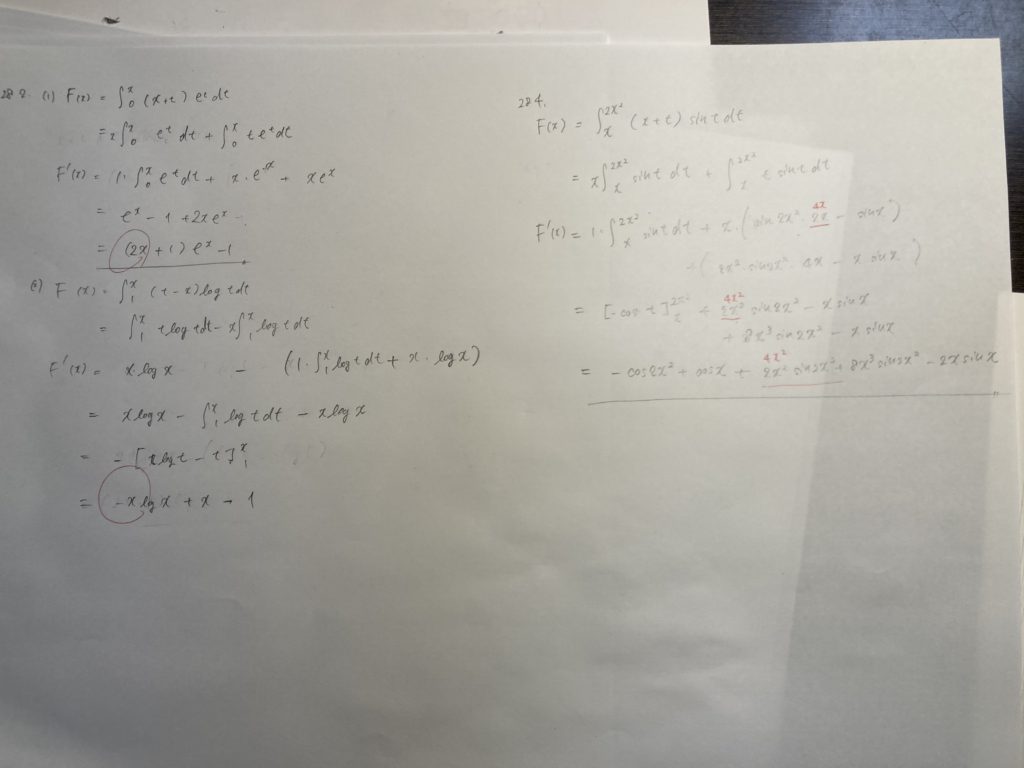 282. (1) F(x) = ∫₀ˣ (x+t) eᵗ dt
= x∫₀ˣ eᵗ dt + ∫₀ˣ t eᵗ dt
F'(x) = 1·∫₀ˣ eᵗ dt + x·eˣ + xeˣ
= eˣ - 1 + 2xeˣ
= (2x+1) eˣ - 1
F(x) = ∫₁ˣ (t-x) log t dt
= ∫₁ˣ t log t dt - x∫₁ˣ log t dt
F'(x) = x log x - (1·∫₁ˣ log t dt + x·log x)
= x log x - ∫₁ˣ log t dt - x log x
= - [x log t - t]₁ˣ
= -x log x + x - 1
284.
F(x) = ∫ₓ^2x² (x+t) sin t dt
= x∫ₓ^2x² sin t dt + ∫ₓ^2x² t sin t dt
4x
F'(x) = 1·∫ₓ^2x² sin t dt + x·(sin 2x²· 2x - sin x)
+ (2x²·sin 2x²·4x - x sin x)
4x²
= [-cos t]ₓ^2x² + 2x² sin 2x² - x sin x
+ 8x³ sin 2x² - x sin x
4x²
= - cos 2x² + cos x + 2x² sin 2x² + 8x³ sin 2x² - 2x sin x